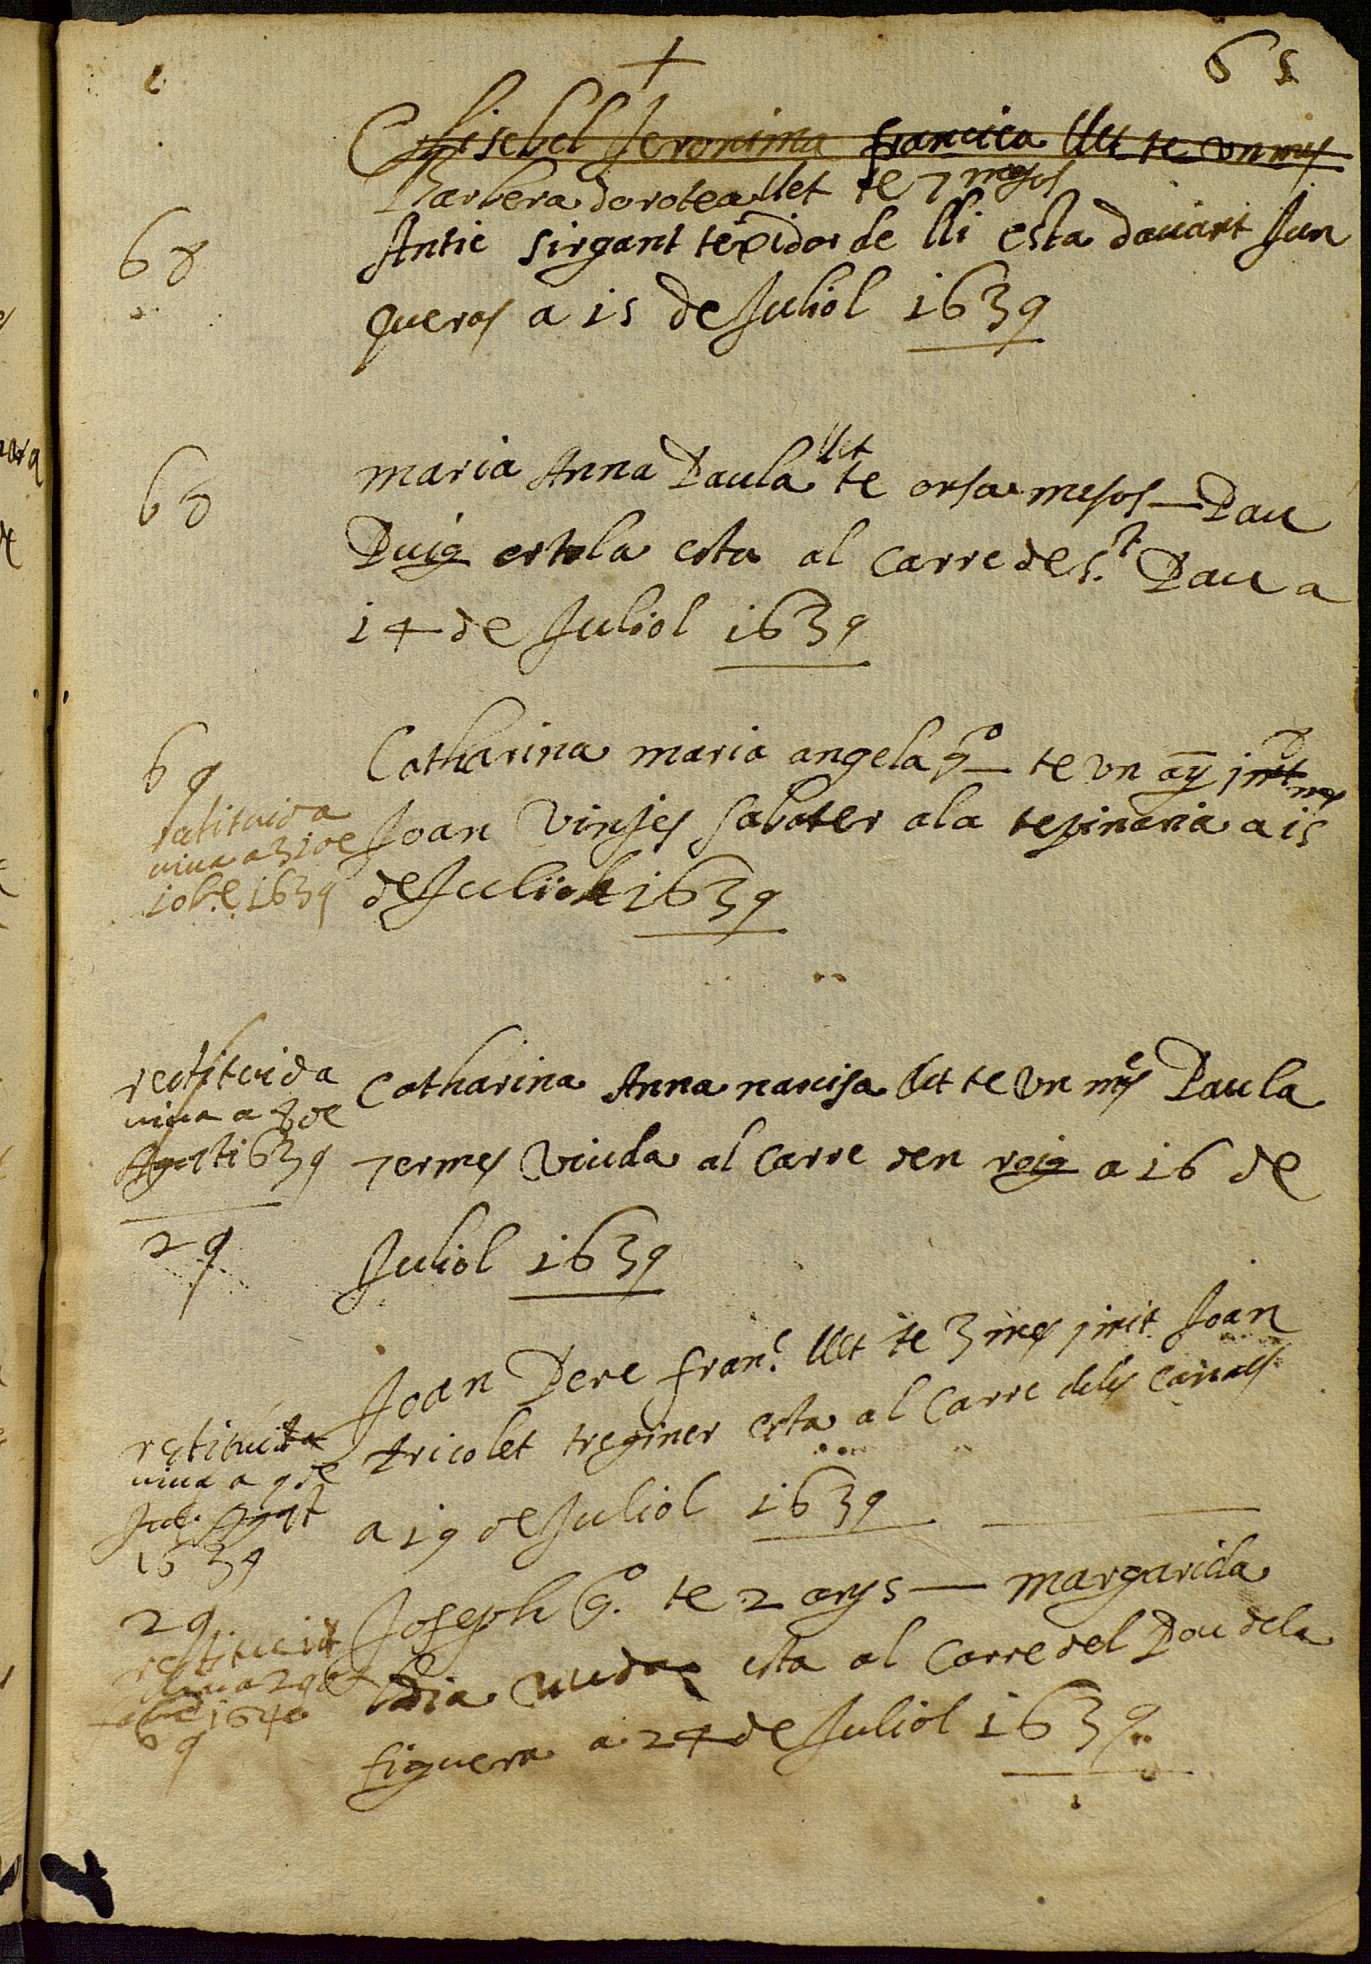 65
Elisebel Jeronima francica llet te un mes
Barbera dorotea llet te 7 mesos
68
Antic sirgant texidor de lli esta davant Jun
queras a 15 de Juliol 1639
68
maria Anna Paula llet te onsa mesos — Pau
Puig ortola esta al carre de s.t Pau a
14 de Juliol 1639
69
Catharina maria angela g.o te un ay j mit
restituida viva a 31 de
10b.e 1639
Joan Vinyes sabater a la tepineria a 15
de Juliol 1639
restituida
viva a de
Agost 1639
29
Catharina Anna narcisa llet te un mes Paula
Termes viuda al carre den roig a 16 de
Juliol 1639
restituida
viva a 9 de
Agost
1639
29
Joan Pere fran.c llet te 3 mes j mit Joan
tricolet treginer esta al carre dels
a 19 de Juliol 1639
restituit
viu a 29 de
1640
69
Joseph g.o te 2 anys — margarida
viuda esta al carre del Pou de la
figuera a 24 de Juliol 1639